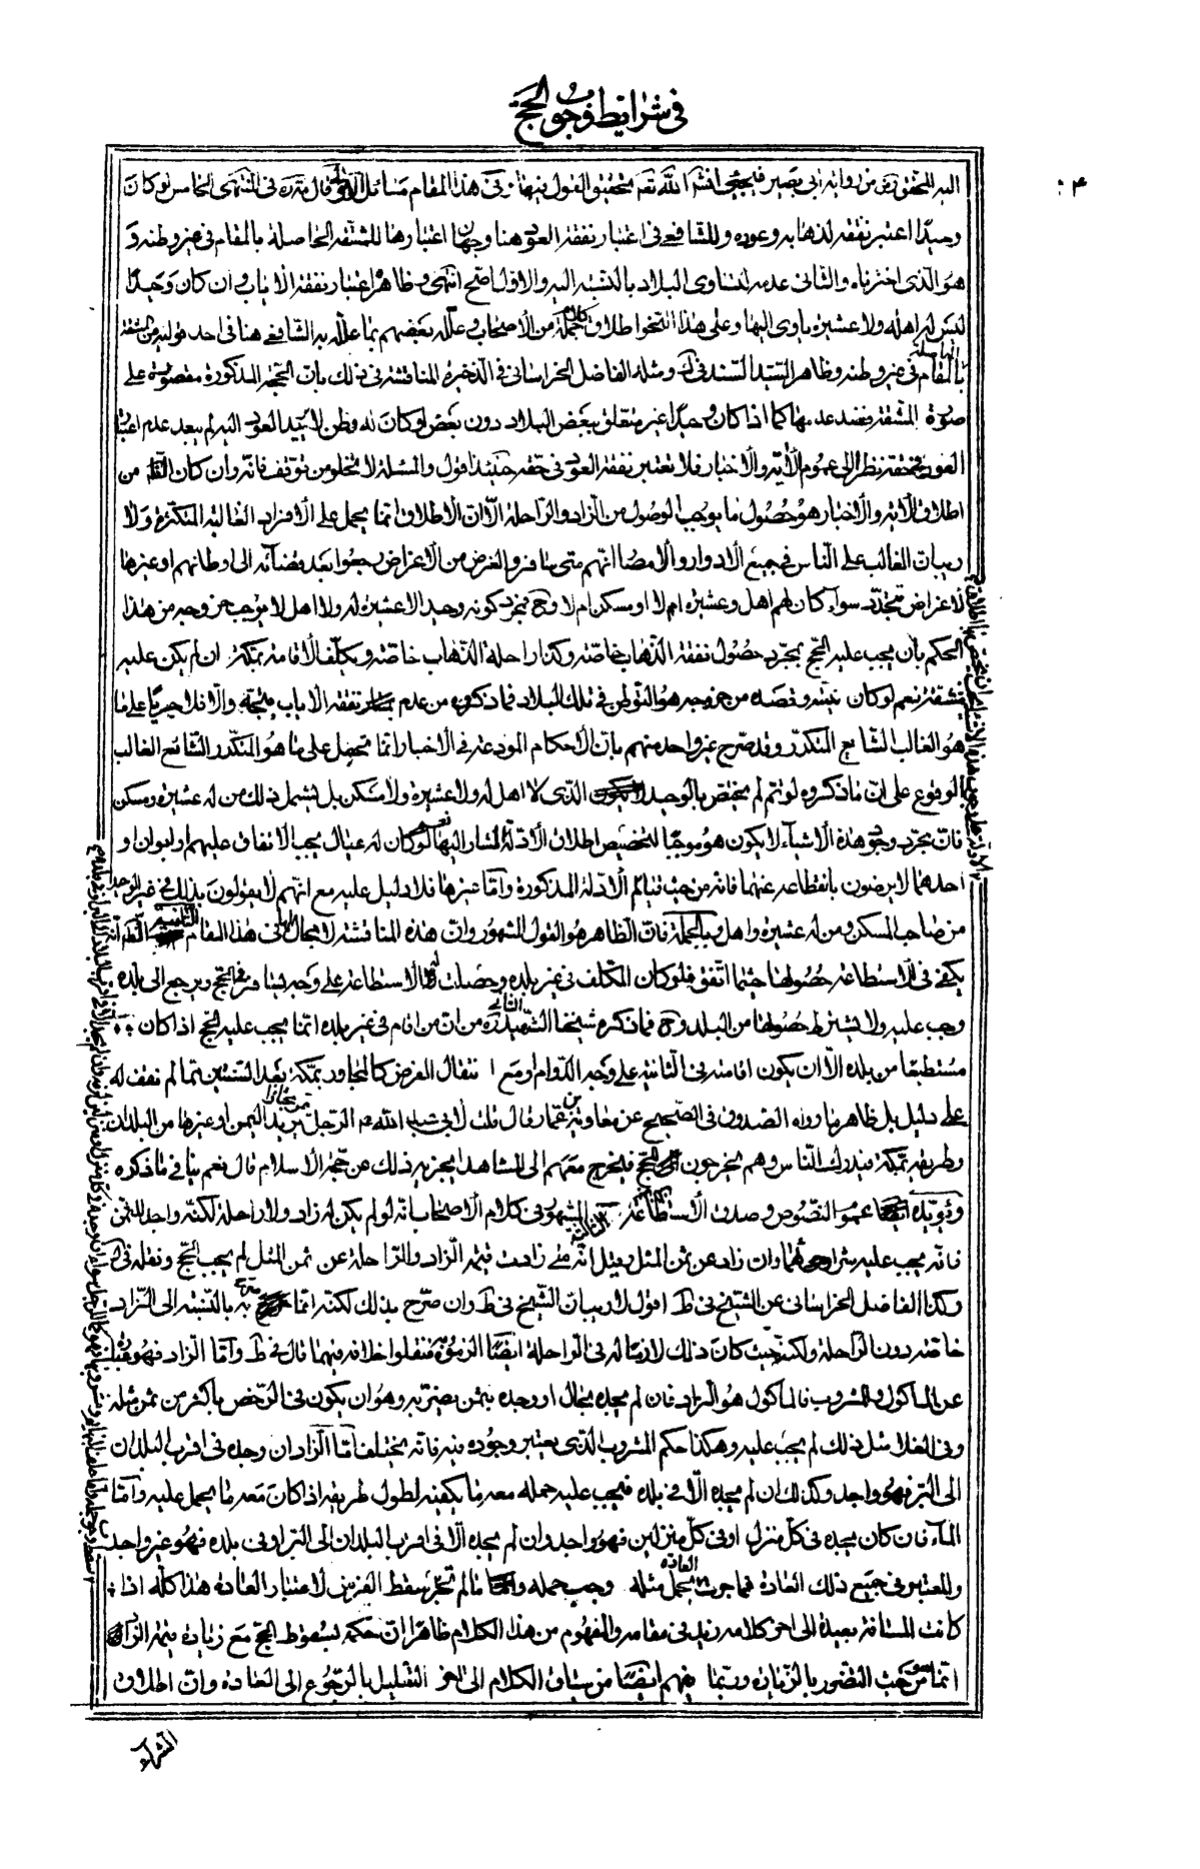 في شرائط وجوب الحج
٤
اليه المحقق من رواية ابي بصير فيجيء انشاء الله نعم تحقيق القول فيها وفي هذا المقام مسائل الاولى قال في المنتهى الخامس لو كان
وحيدا اعتبر نفقة لذهابه وعوده وللشافعي في اعتبار نفقة العود هنا وجهان اعتبارها للمشقة الحاصلة بالمقام في غير وطنه و
هو الذي اخترناه والثاني عدمه لتساوي البلاد بالنسبة اليه والاول اصح انتهى وظاهره اعتبار نفقة الاياب وان كان وحيدا
ليس له اهل ولا عشيرة ياوى اليها وعلى هذا النحو اطلاق كلام جملة من الاصحاب وعلله بعضهم بما علله به الشافعي هنا في احد قوليه من المشقة الحاصلة
بالمقام في غير وطنه وظاهر السيد السند في ك ومثله الفاضل الخراساني في الذخيرة المناقشة في ذلك بان الحجة المذكورة مقصورة على
صورة المشقة فعند عدمها كما اذا كان وحيدا غير متعلق ببعض البلاد دون بعض او كان له وطن لا يريد العود اليه لم يبعد عدم اعتبار
العود في حقه نظرا الى عموم الآية والاخبار فلا تعتبر نفقة العود في حقه حينئذ اقول والمسئلة لا تخلو من توقف فانه وان كان من
اطلاق الآية والاخبار هو حصول ما يوجب الوصول من الزاد والراحلة الا ان الاطلاق انما يحمل على الافراد الغالبة المتكررة ولا
ريب ان الغالب على الناس في جميع الادوار والامصار انهم متى سافروا لغرض من الاغراض رجعوا بعد قضائه الى اوطانهم او غيرها
لاغراض تتجدد سواء كان لهم اهل وعشيرة ام لا او مسكن ام لا وح فمجرد كونه وحيدا لا عشيرة له ولا اهل لا يوجب خروجه من هذا
الحكم بان يجب عليه الحج بمجرد حصول نفقة الذهاب خاصة وكذا راحلة الذهاب خاصة ويكلف الاقامة بمكة ان لم يكن عليه
مشقة نعم لو كان نيته وقصده من خروجه هو التوطن في تلك البلاد فما ذكروه من عدم نفقة الاياب متجه والا فلا جريا على ما
هو الغالب الشايع المتكرر وقد صرح غير واحد منهم بان الاحكام المودعة في الاخبار انما تحمل على ما هو المتكرر الشائع الغالب
الوقوع على ان ما ذكروه لو تم لم يختص بالوحيد الذي لا اهل له ولا عشيرة ولا مسكن بل يشمل ذلك من له عشيرة ومسكن
فان مجرد وجود هذه الاشياء لا يكون هو موجبا لتخصيص اطلاق الادلة المشار اليها نعم لو كان له عيال يجب الانفاق عليهم او ابوان او
احدهما لا يرضون بانقطاعه عنهما فانه من حيث قيام الادلة المذكورة واما غيرها فلا دليل عليه مع انهم لا يقولون بذلك في غير الوحيد
من صاحب المسكن ومن له عشيرة واهل وبالجملة فان الظاهر هو القول المشهور وان هذه المناقشة لا مجال لها في هذا المقام الثانية انه
يكفي في الاستطاعة حصولها حيثما اتفق فلو كان المكلف في غير بلده وحصلت له الاستطاعة على وجه يسافر الحج ويرجع الى بلده
وجب عليه ولا يشترط حصولها من البلد وح فما ذكره شيخنا الشهيد الثاني ره من ان من اقام في غير بلده انما يجب عليه الحج اذا كان
مستطيعا من بلده الا ان يكون اقامته في الثانية على وجه الدوام او مع انتقال الفرض كالمجاور بمكة بعد السنتين مما لم نقف له
على دليل بل ظاهر ما رواه الصدوق في الصحيح عن معاوية بن عمار قال قلت لابي عبد الله ع الرجل يمر مجتازا يريد اليمن او غيرها من البلدان
وطريقه بمكة فيدرك الناس وهم يخرجون الى الحج فيخرج معهم الى المشاهد ايجزيه ذلك عن حجة الاسلام قال نعم ينافي ما ذكره
ويؤيده عموم النصوص وصدق الاستطاعة الثالثة المشهور في كلام الاصحاب انه لو لم يكن له زاد ولا راحلة لكنه واجد للثمن
فانه يجب عليه شراؤهما وان زاد عن ثمن المثل وقيل انه متى زادت قيمة الزاد والراحلة عن ثمن المثل لم يجب الحج ونقله في ك
وكذا الفاضل الخراساني عن الشيخ في ط اقول لا ريب ان الشيخ في ط وان صرح بذلك لكنه انما صرح به بالنسبة الى الزاد
خاصة دون الراحلة ولكن حيث كان ذلك لازما له في الراحلة ايضا الزموه فنقلوا خلافه فيهما قال في ط واما الزاد فهو عبارة
عن المأكول والمشروب فالمأكول هو الزاد فان لم يجده بحال او وجده بثمن يضر به وهو ان يكون في الرخص باكثر من ثمن مثله
وفي الغلا مثل ذلك لم يجب عليه وهكذا حكم المشروب الذي يعتبر وجوده فيه فانه يختلف اما الزاد ان وجده في اقرب البلدان
الى البر فهو واجد وكذلك ان لم يجده الا في بلده فيجب عليه حمله معه ما يكفيه لطول طريقه اذا كان معه ما يحمل عليه واما
الماء فان كان يجده في كل منزل او في كل منزلين فهو واجد وان لم يجده الا في اقرب البلدان الى البر او في بلده فهو غير واجد
والمعتبر في جميع ذلك العادة فما جرت العادة بحمل مثله وجب حمله وما لم تجر سقط الفرض لاعتبار العادة هذا كله اذا
كانت المسافة بعيدة الى اخر كلامه زيد في مقامه والمفهوم من هذا الكلام ظاهرا ان حكمه بسقوط الحج مع زيادة قيمة الزاد
انما هو من حيث التضرر بالزيادة وربما يفهم ايضا من سياق الكلام الى اخر التعليل بالرجوع الى العادة وان اطلاق
الشراء